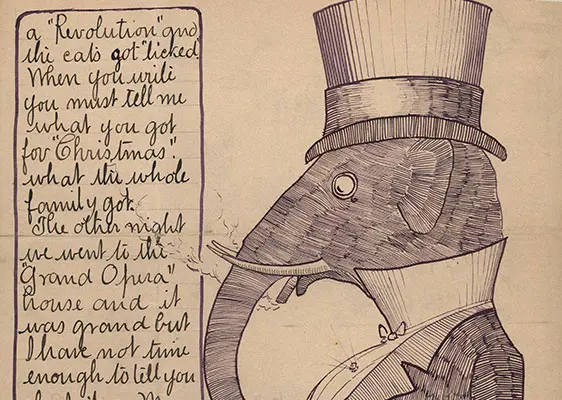 a "Revolution" and
the cats got "licked.
When you write
you must tell me
what you got
for "Christmas"
what the whole
family got.
The other night
we went to the
"Grand Opera"
house and it
was grand but
I have not time
enough to tell you